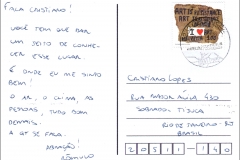 FALA CRISTIANO!
VOCÊ TEM QUE DAR
UM JEITO DE CONHE-
CER ESSE LUGAR
É ONDE EU ME SINTO
BEM!
O AR, O CLIMA, AS
PESSOAS, TUDO BOM
DEMAIS.
A GT SE FALA.
ABRAÇÃO!
RÔMULO
I ♥
CRISTIANO LOPES
RUA
430
TIJUCA
RIO DE JANEIRO - RJ
BRASIL
20511-140